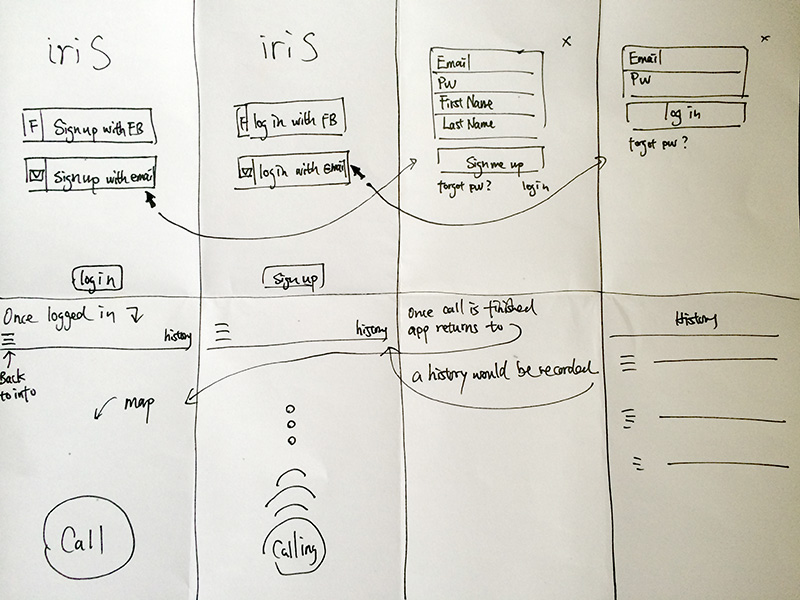 iriS
F Sign up with FB
Sign up with email
login
iriS
F log in with FB
login with email
Sign up
x
Email
PW
First Name
Last Name
Sign me up
forgot pw? login
x
Email
PW
log in
forgot pw?
Once logged in
history
Back
to info
map
Call
history
Calling
Once call is finished
app returns to
a history would be recorded
History